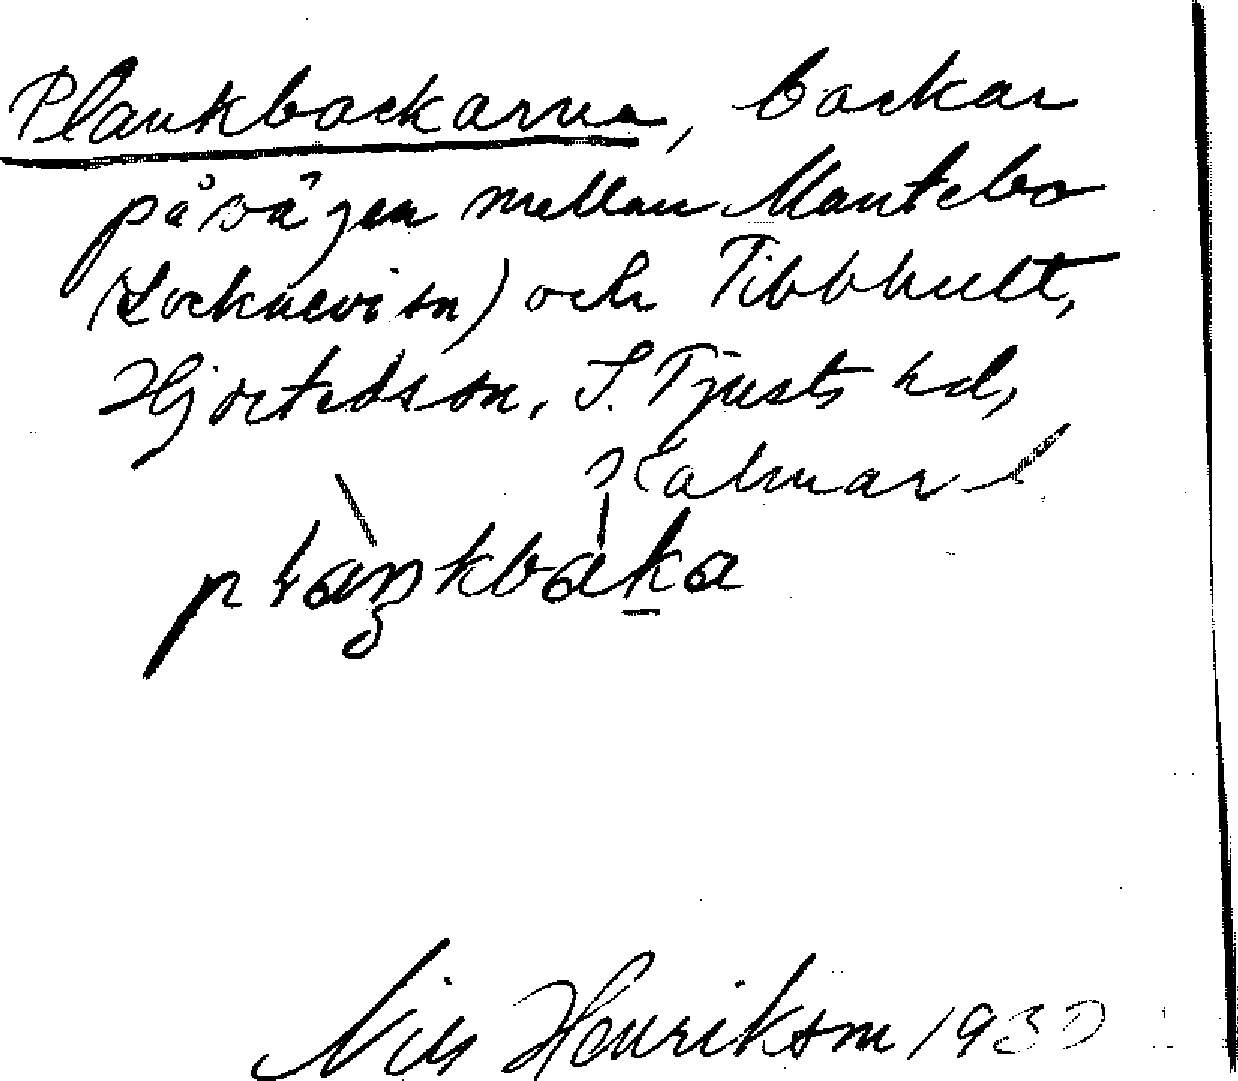 Plankbackarna, backar
på vägen mellan Mantebo
(Locknevi sn) och Tibbhult,
Hjorteds sn, S. Tjusts hd,
Kalmar l
Nils Henrikson 1930